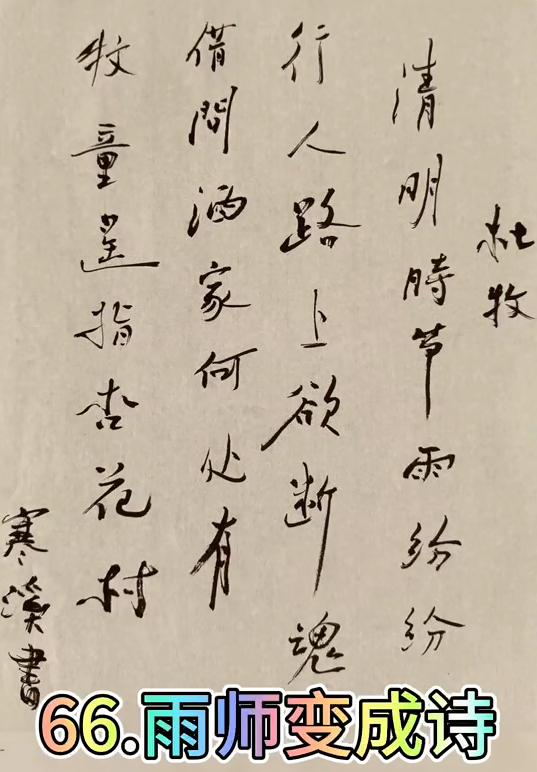 杜牧
清明時节雨紛紛
行人路上欲断魂
借問酒家何处有
牧童遥指杏花村
寒溪書
66.雨师变成诗